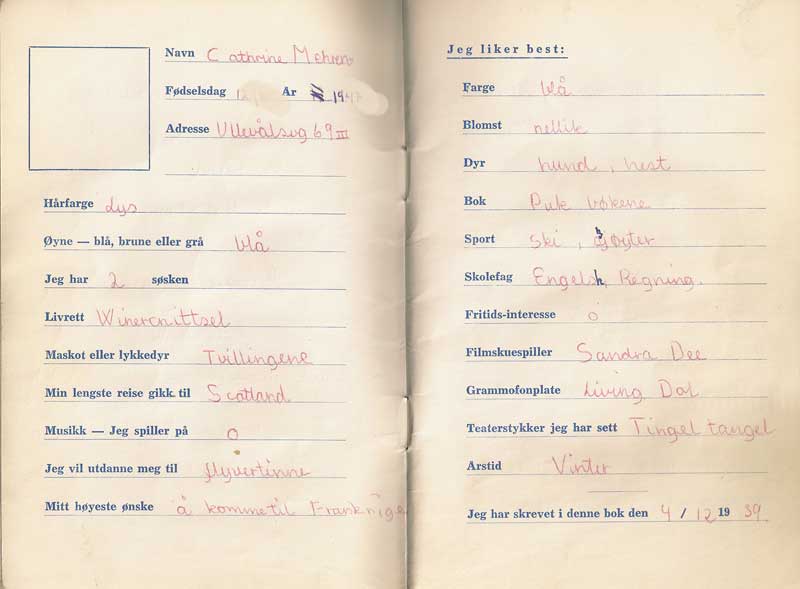 Navn Cathrine Mehren
Fødselsdag År 19
Adresse Ullevålsvg 69 III
Hårfarge Lys
Øyne — blå, brune eller grå blå
Jeg har 2 søsken
Livrett Winercnittsel
Maskot eller lykkedyr Tvillingene
Min lengste reise gikk til Scotland
Musikk — Jeg spiller på O
Jeg vil utdanne meg til flyvertinne
Mitt høyeste ønske å komme til Frankrige
Jeg liker best:
Farge blå
Blomst nellik
Dyr hund, hest
Bok Puk bøkene
Sport Ski, skøyter
Skolefag Engelsk, Regning.
Fritids-interesse o
Filmskuespiller Sandra Dee
Grammofonplate Living Dol
Teaterstykker jeg har sett Tingel tangel
Årstid Vinter
Jeg har skrevet i denne bok den 4 / 12 19 59.